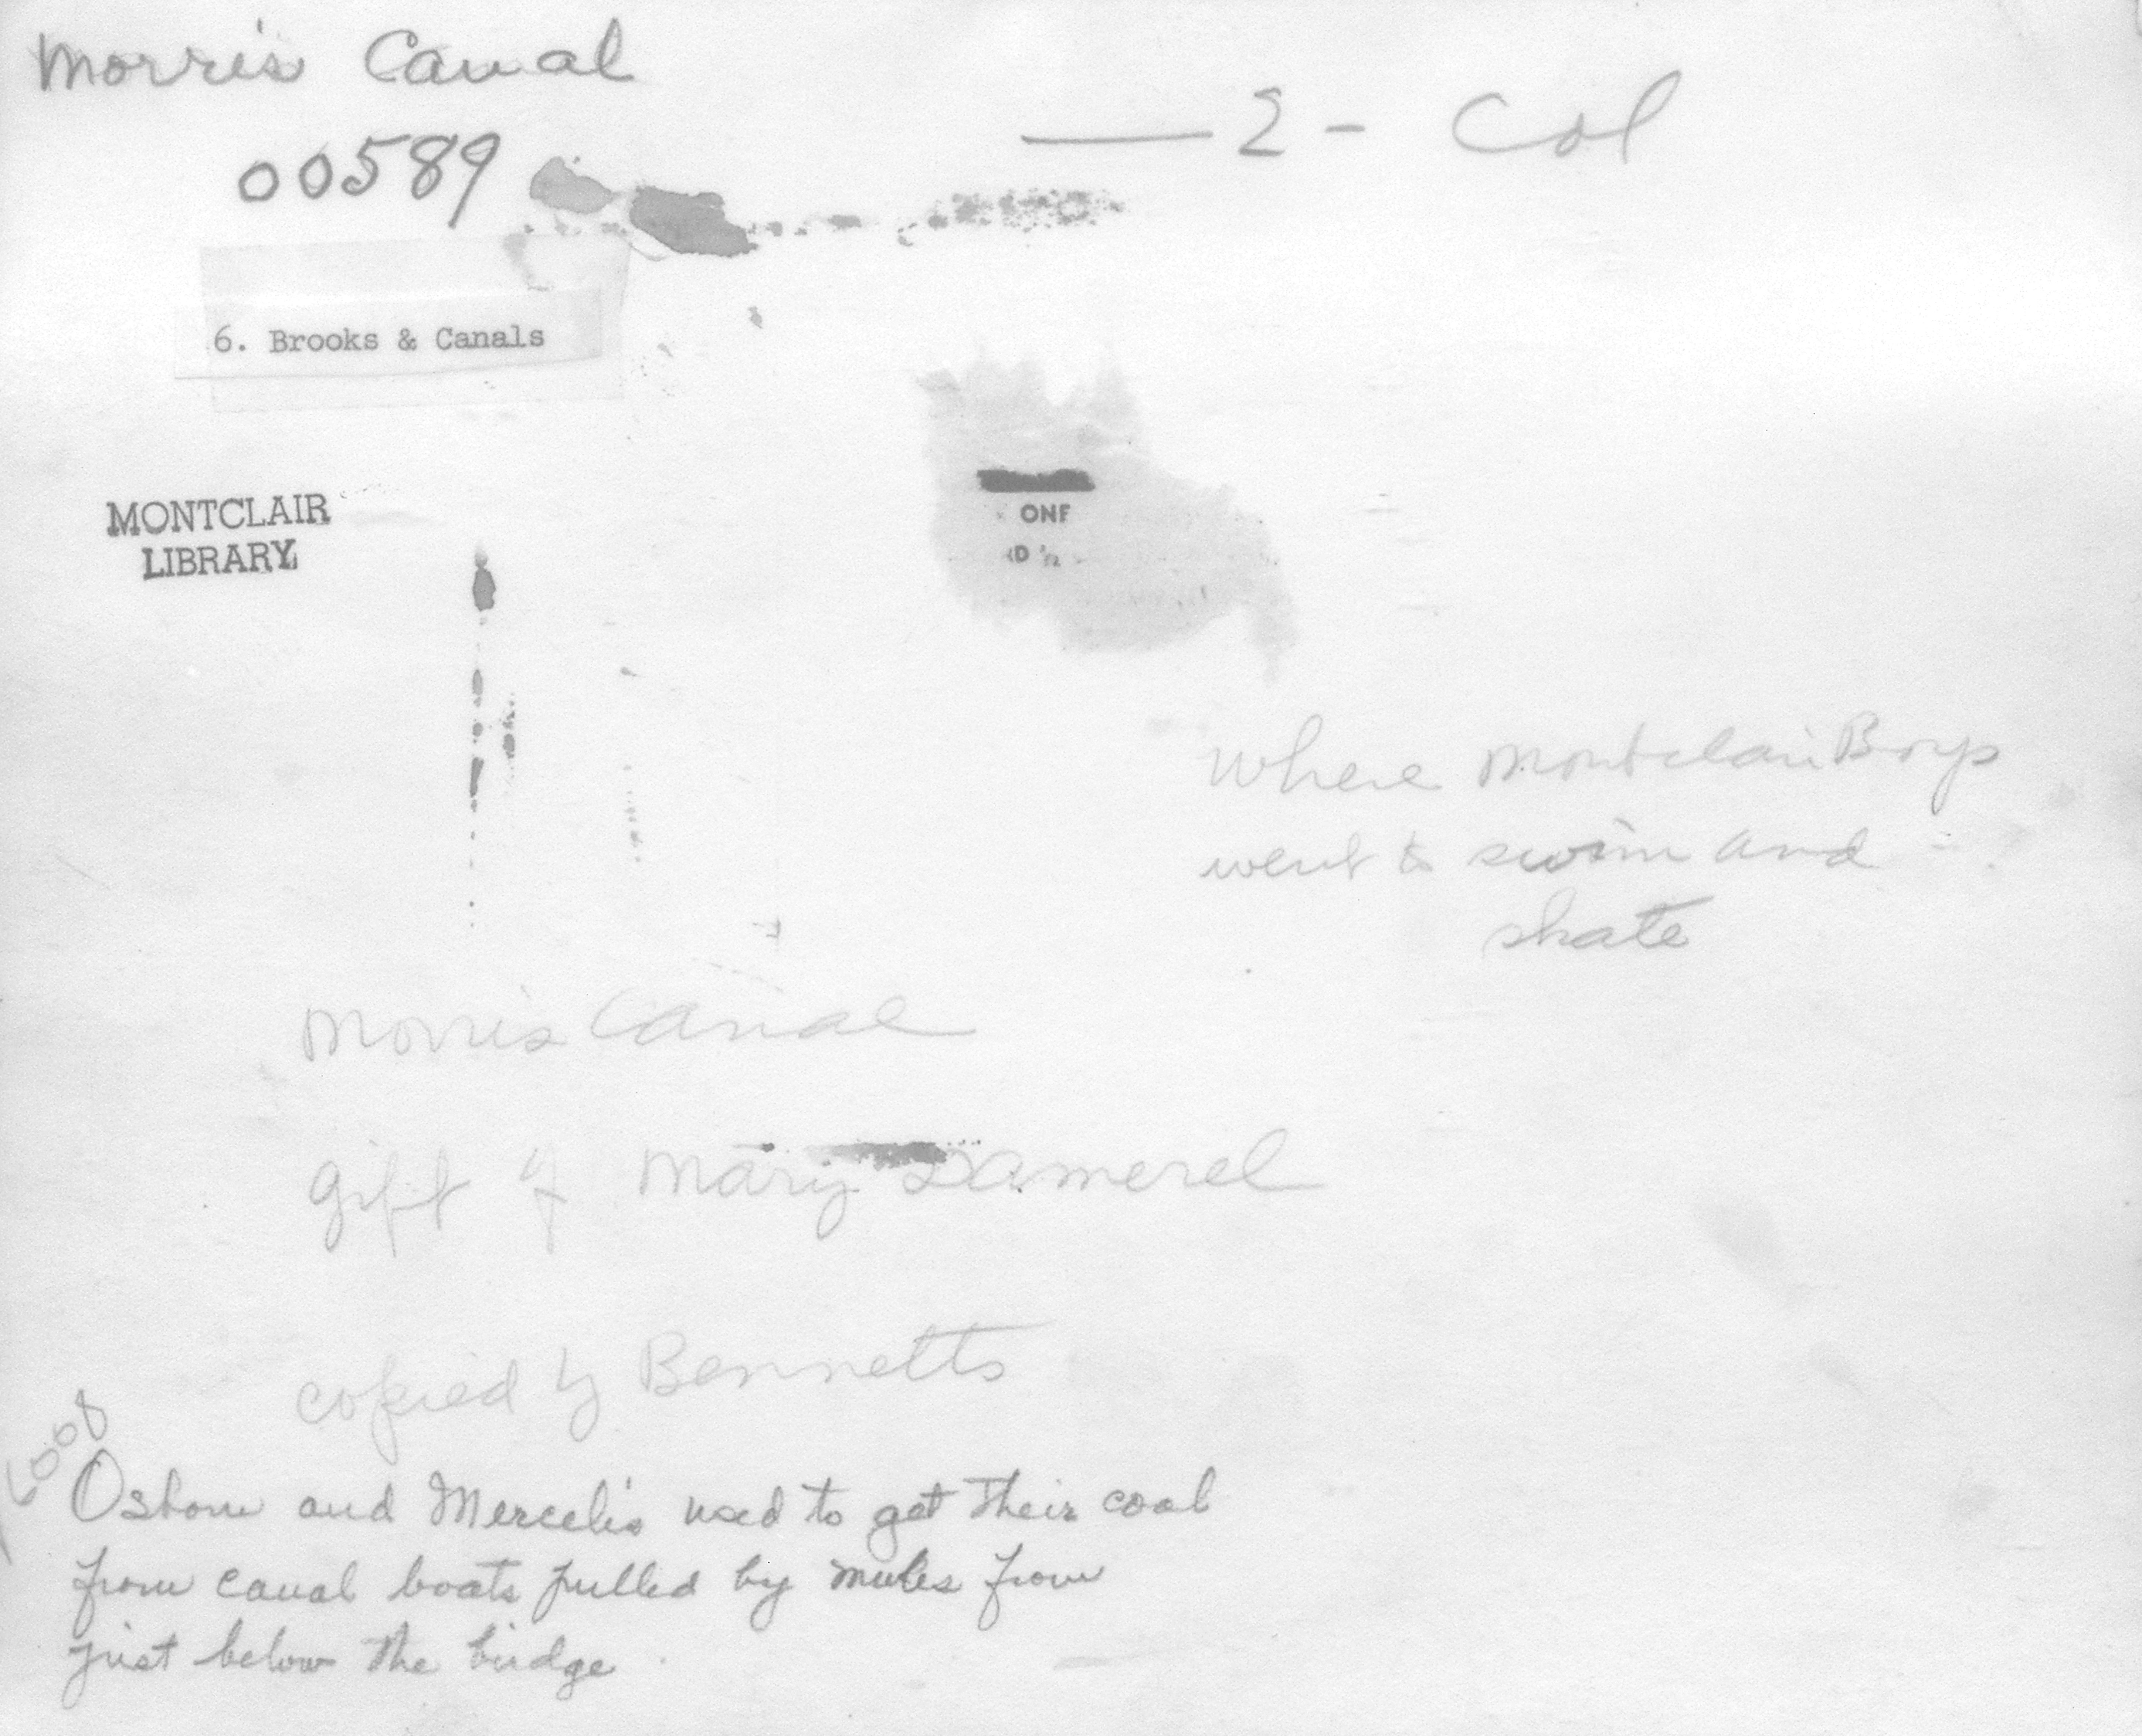 Morris Canal
00589
2 - Col
6. Brooks & Canals
MONTCLAIR
LIBRARY
ONF
Where Montclair Boys
went to swim and
skate
Morris Canal
gift of Mary Damerel
copied by Bennetts
Osborne and Mercelis used to get their coal
from canal boats pulled by mules from
just below the bridge